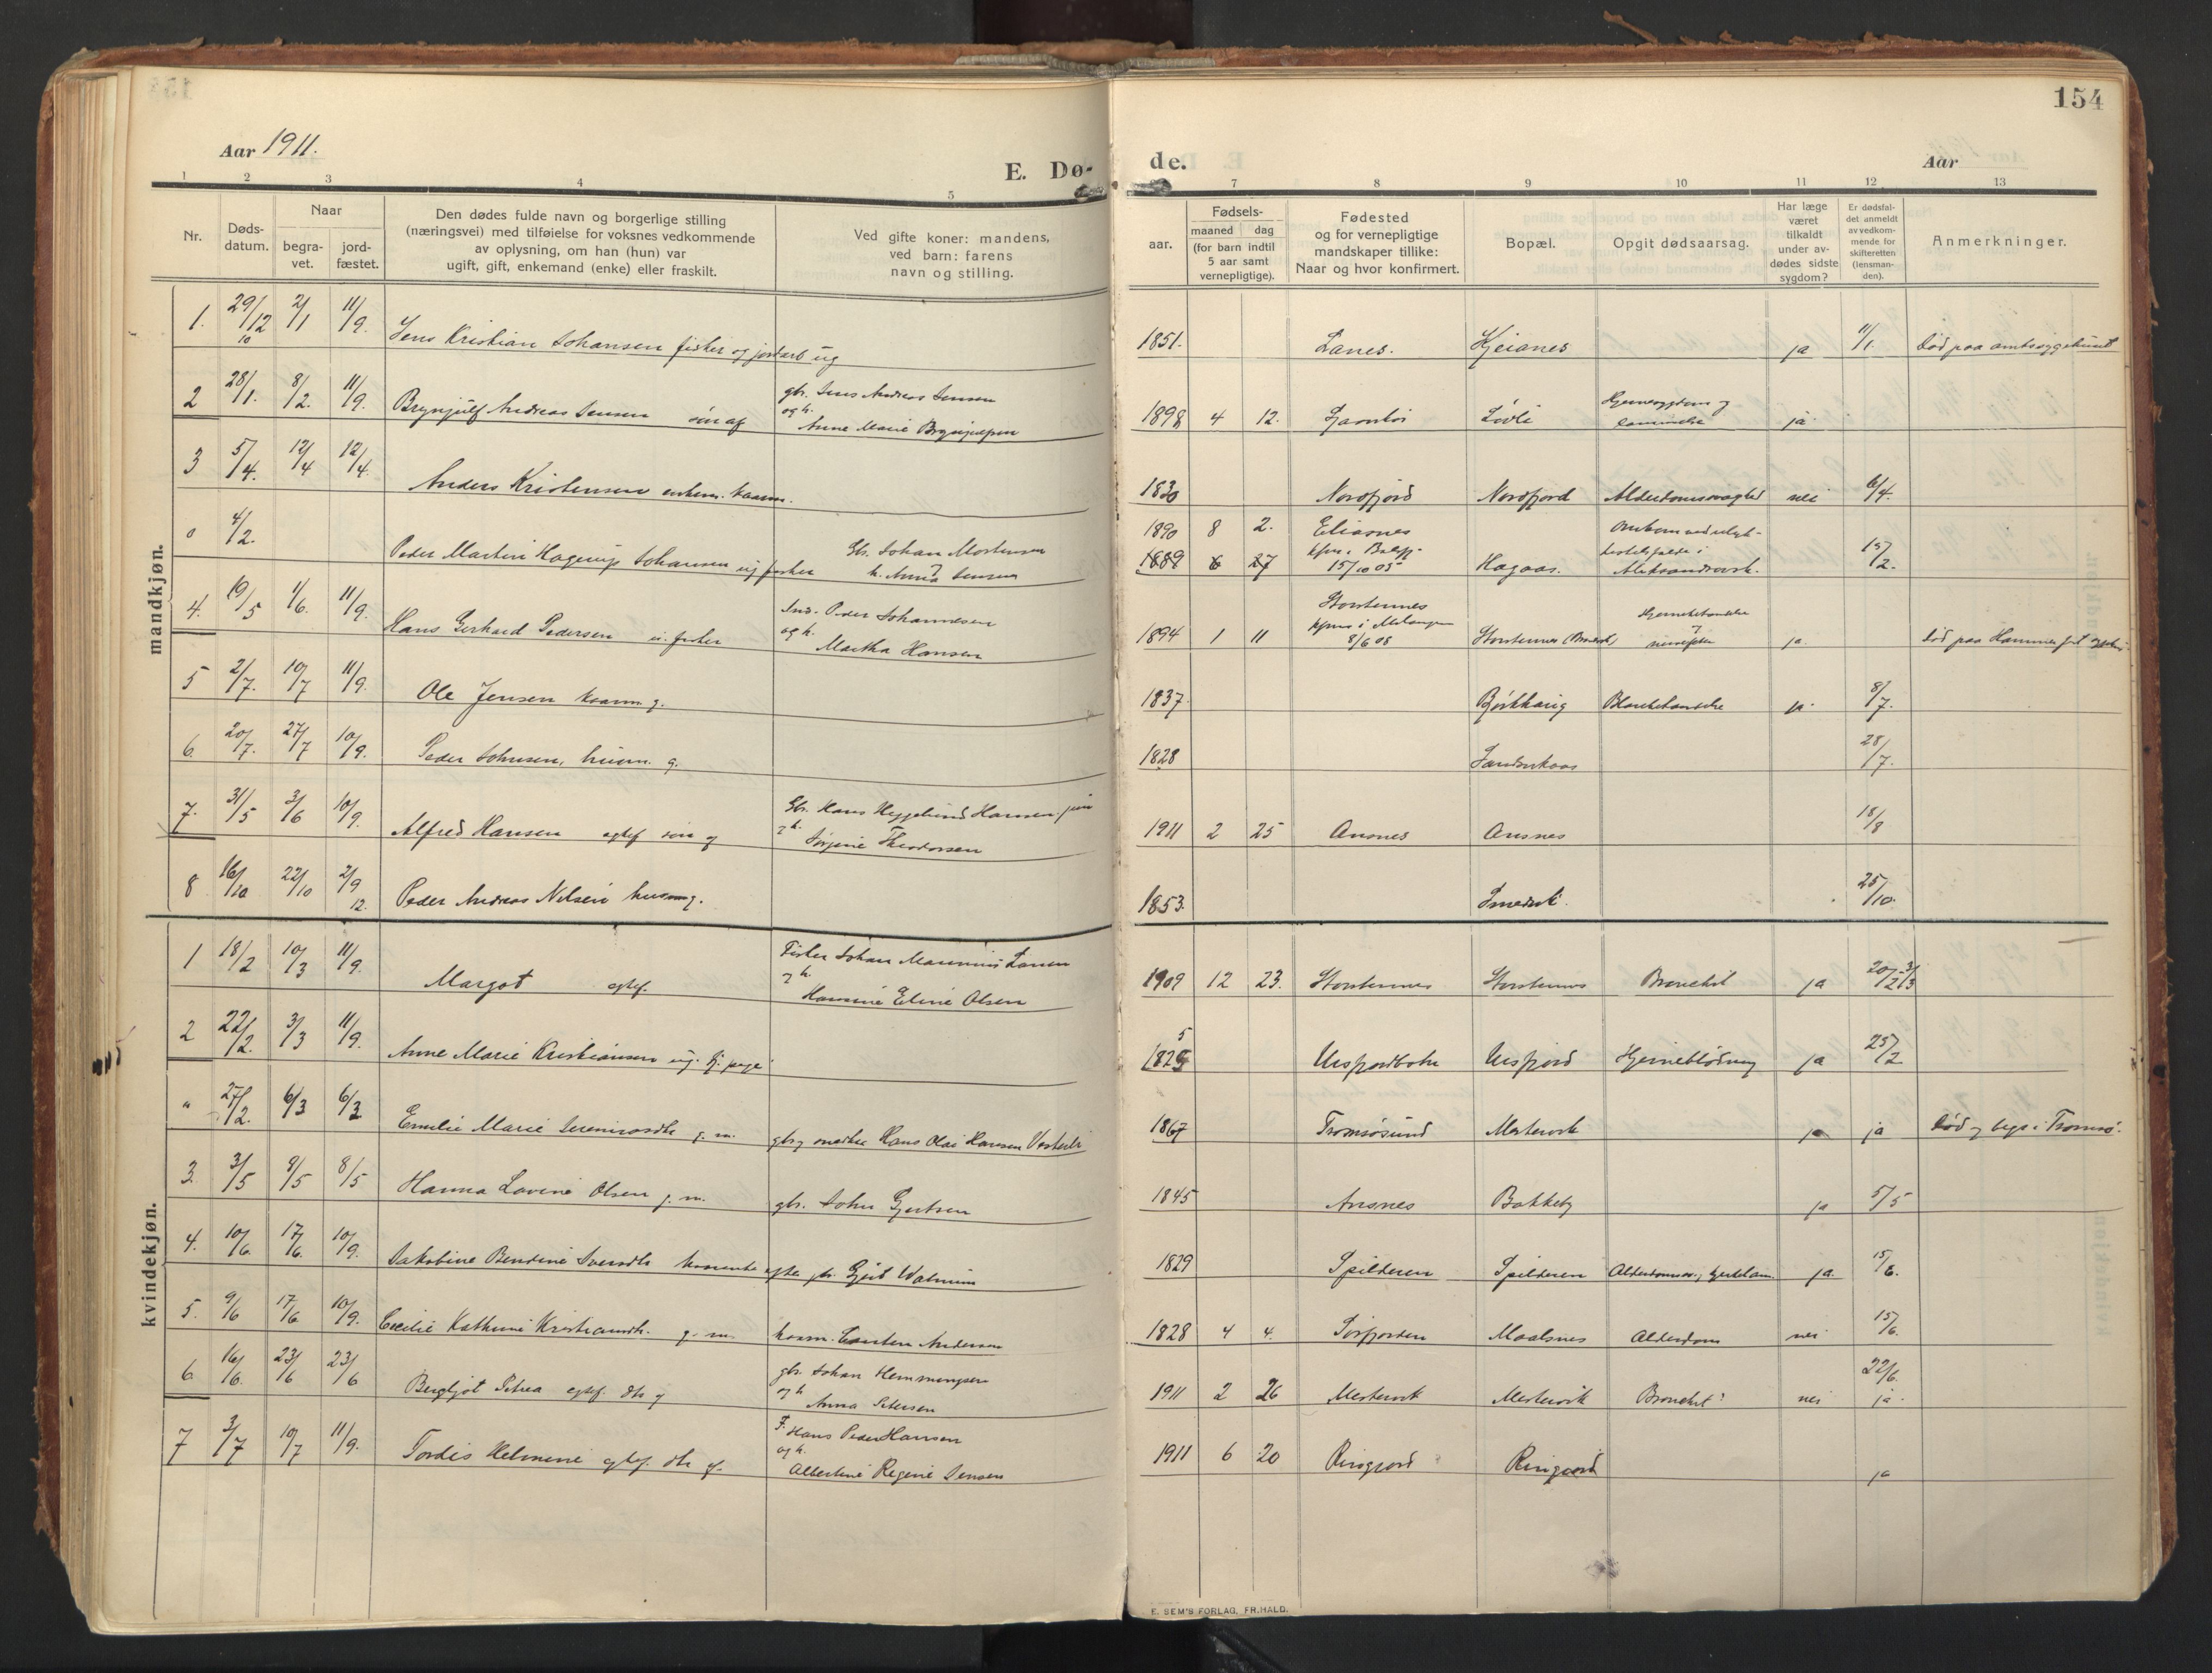 154
Aar 1911.
E. Dø-
de.
Aar
1 2 3 4 5
7 8 9 10 11 12 13
Nr.
Døds-
datum.
Naar
begra-
vet.
jord-
fæstet.
Den dødes fulde navn og borgerlige stilling
(næringsvei) med tilføielse for voksnes vedkommende
av oplysning, om han (hun) var
ugift, gift, enkemand (enke) eller fraskilt.
Ved gifte koner: mandens,
ved barn: farens
navn og stilling.
aar.
Fødsels-
maaned dag
(for barn indtil
5 aar samt
vernepligtige).
Fødested
og for vernepligtige
mandskaper tillike:
Naar og hvor konfirmert.
Bopæl.
Opgit dødsaarsag.
Har læge
været
tilkaldt
under av-
dødes sidste
sygdom?
Er dødsfal-
det anmeldt
av vedkom-
mende for
skifteretten
(lensman-
den).
Anmerkninger.
mandkjøn.
1. 29/12 10 2/1 11/9. Jens Kristian Johansen fisker og jordarb ug 1851. Lanes. Kjeianes ja 11/1.
2 28/1. 8/2. 11/9. Brynjulf Andreas Jensen søn af gbr. Jens Andreas Jensen
og h. Anne Marie 1898 4 12. Løvli ja
3 5/4. 12/4 12/4. Anders Kristensen enkem. kaarm. 1830 Nordfjord Nordfjord Alderdomssvaghed nei 6/4.
0 4/2. Peder Martin Hagerup Johansen ug fisker Gb. Johan Mortensen
h. Anna Jensen 1890 8 2. Eliasnes
1889 6 27 15/10 05 Hagaas. 15/2.
4. 19/5 1/6. 11/9. Hans Gerhard Pedersen u. fisker Ind. Peder Johannesen
og h. Martha Hansen 1894 1 11 Storstennes
kfms i Malangen
8/6 08 Storstennes ja
5 2/7. 10/7 11/9. Ole Jensen kaarm g. 1837. ja. 8/7.
6. 20/7. 27/7 10/9. Peder Johnsen, husm. g. 1828 28/7.
7. 31/5 3/6 10/9. Alfred Hansen egtef søn af Gb. Hans Heggelund Hansen, jun
og h. Jørgine Theodorsen 1911 2 25 Ansnes Ansnes 18/8
8 16/10 22/10 2/9 12. Peder Andreas Nilsen husm g. 1853. 25/10.
kvindekjøn.
1 18/2 10/3 11/9. Margot egtef. Fisker Johan
og h. Hansine Eline Olsen 1909 12 23. Storstennes Storstennes Bronchit ja 20/2 3/3
2 22/2. 3/3 11/9. Anne Marie Kristiansen ug. 5
1829 Ursfjordbotn Ursfjord Hjerneblødning ja 25/2
" 27/2. 6/3 6/3 Emilie Marie g. m. gbr. Hans Olai Hansen 1867 Tromsøsund Mestervik ja ja død i Tromsø.
3. 3/5 8/5 8/5 Hanna Lovine Olsen g. m. gbr. John Gjertsen 1845 Ansnes Bakkeby ja 5/5
4. 10/6. 17/6. 10/9. Jakobine Bendine efter gbr. Gjert 1829 Spilderen Spilderen ja. 15/6.
5. 9/6 17/6 10/9. Cecilie Kathrine g. m. kaarm. Andersen 1828 4 4. Sørfjorden Maalsnes Alderdom nei 15/6.
6. 16/6. 23/6 23/6 Bergljot Petrea egtef. dtr af gbr. Johan Hemmingsen
og h Anna Petersen 1911 2 26 Mestervik Mestervik Bronchit? nei 22/6.
ja.
7 3/7 10/7 11/9. Tordis Helmine egtef. dtr af. F. Hans Peder Hansen
og h. Albertine Regine Jensen 1911 6 20 ja
E. SEM'S FORLAG, FR.HALD.